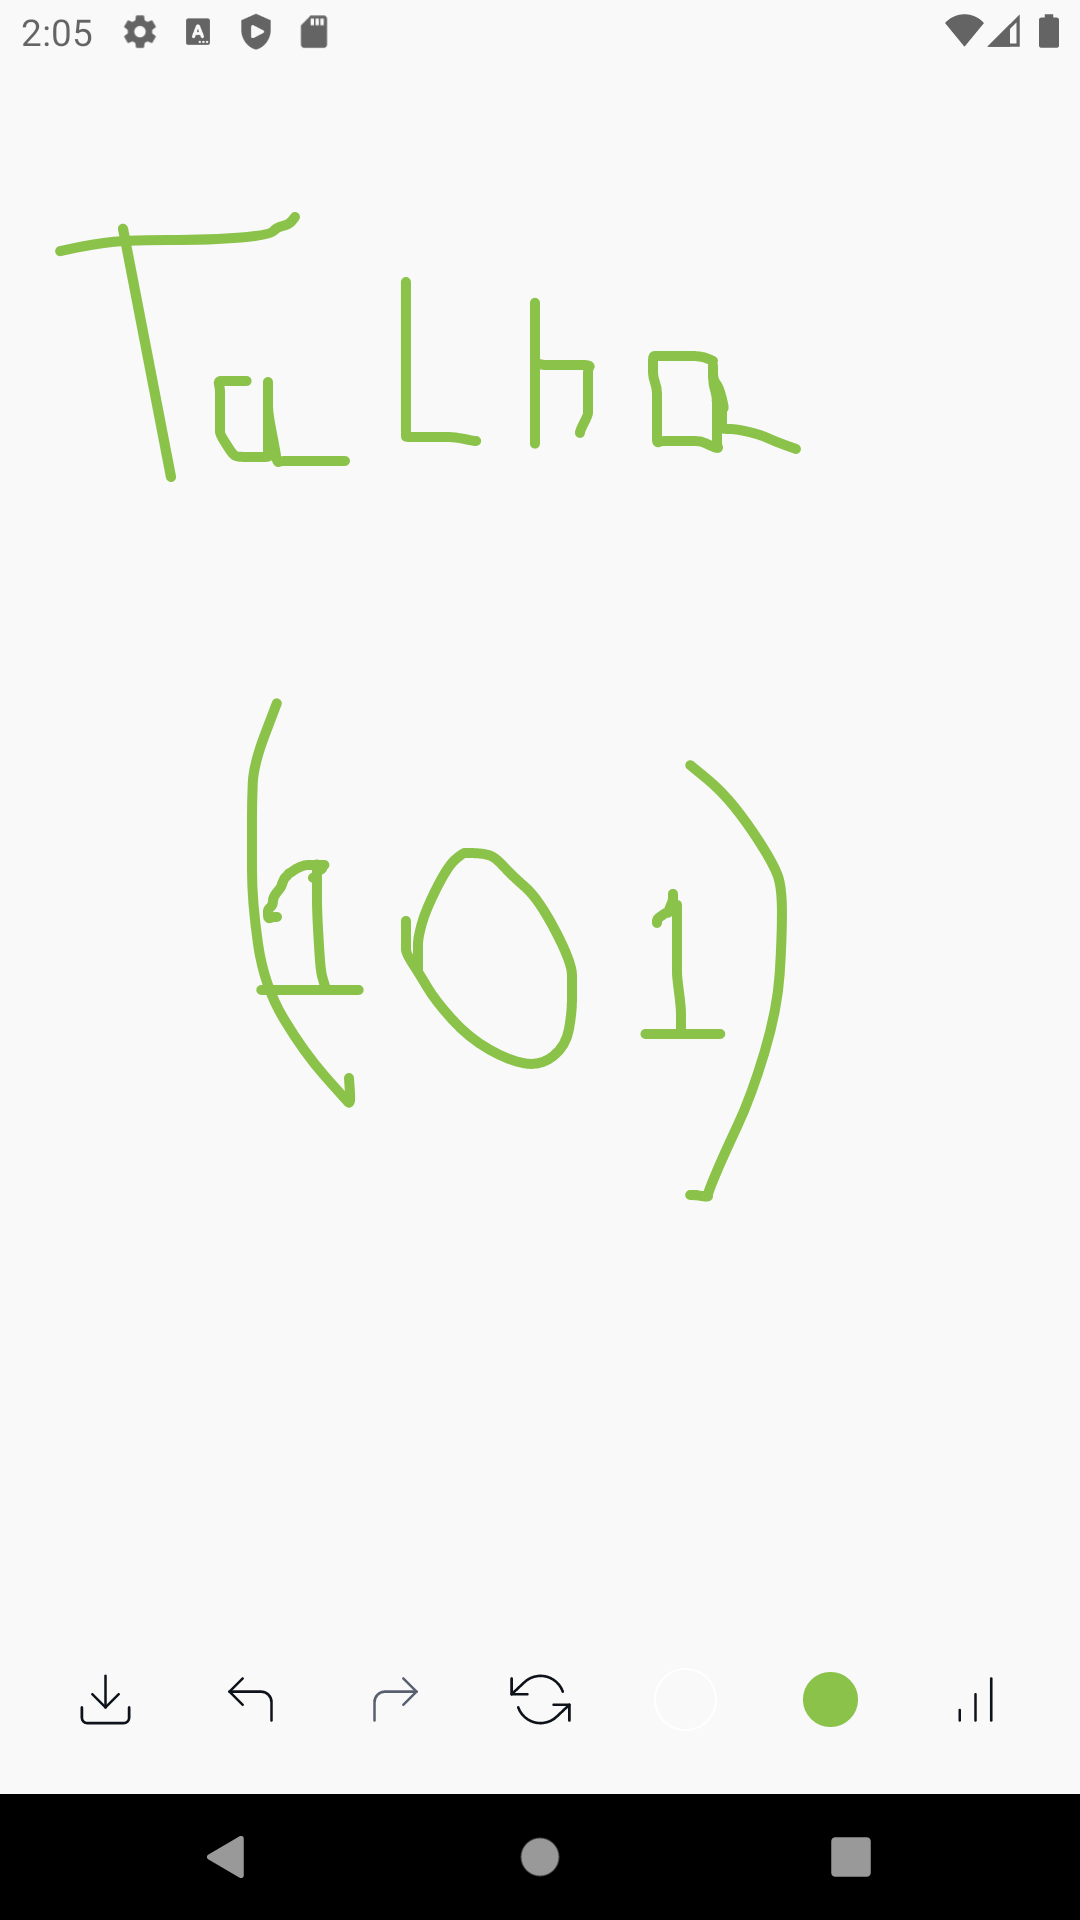 2:05
TaLha
(101)